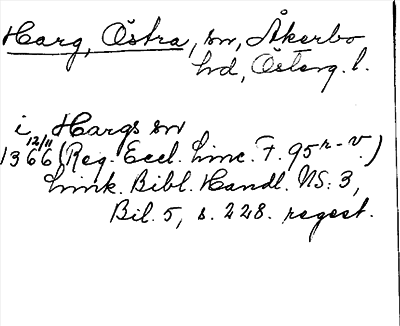 Harg, Östra, sn, Åkerbo
hd, Österg. l.
i Hargs sn
1366 12/11 (Reg. Eccl. Linc. F. 95r-v.)
Link. Bibl. Handl. NS. 3,
Bil. 5, s. 228. regest.